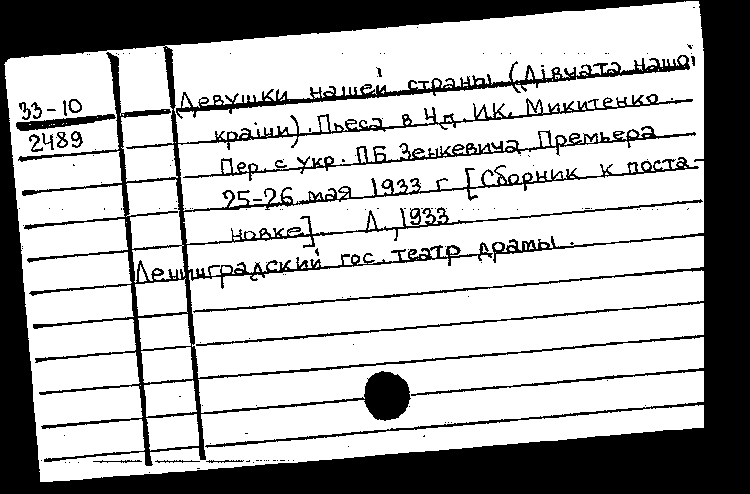 33-10
2489
Девушки нашей страны (Дівчата нашої
країни). Пьеса в 4 д. И.К. Микитенко.
Пер. с укр. П.Б. Зенкевича. Премьера
25-26 мая 1933 г. [Сборник к поста-
новке]. Л., 1933.
Ленинградский гос. театр драмы.